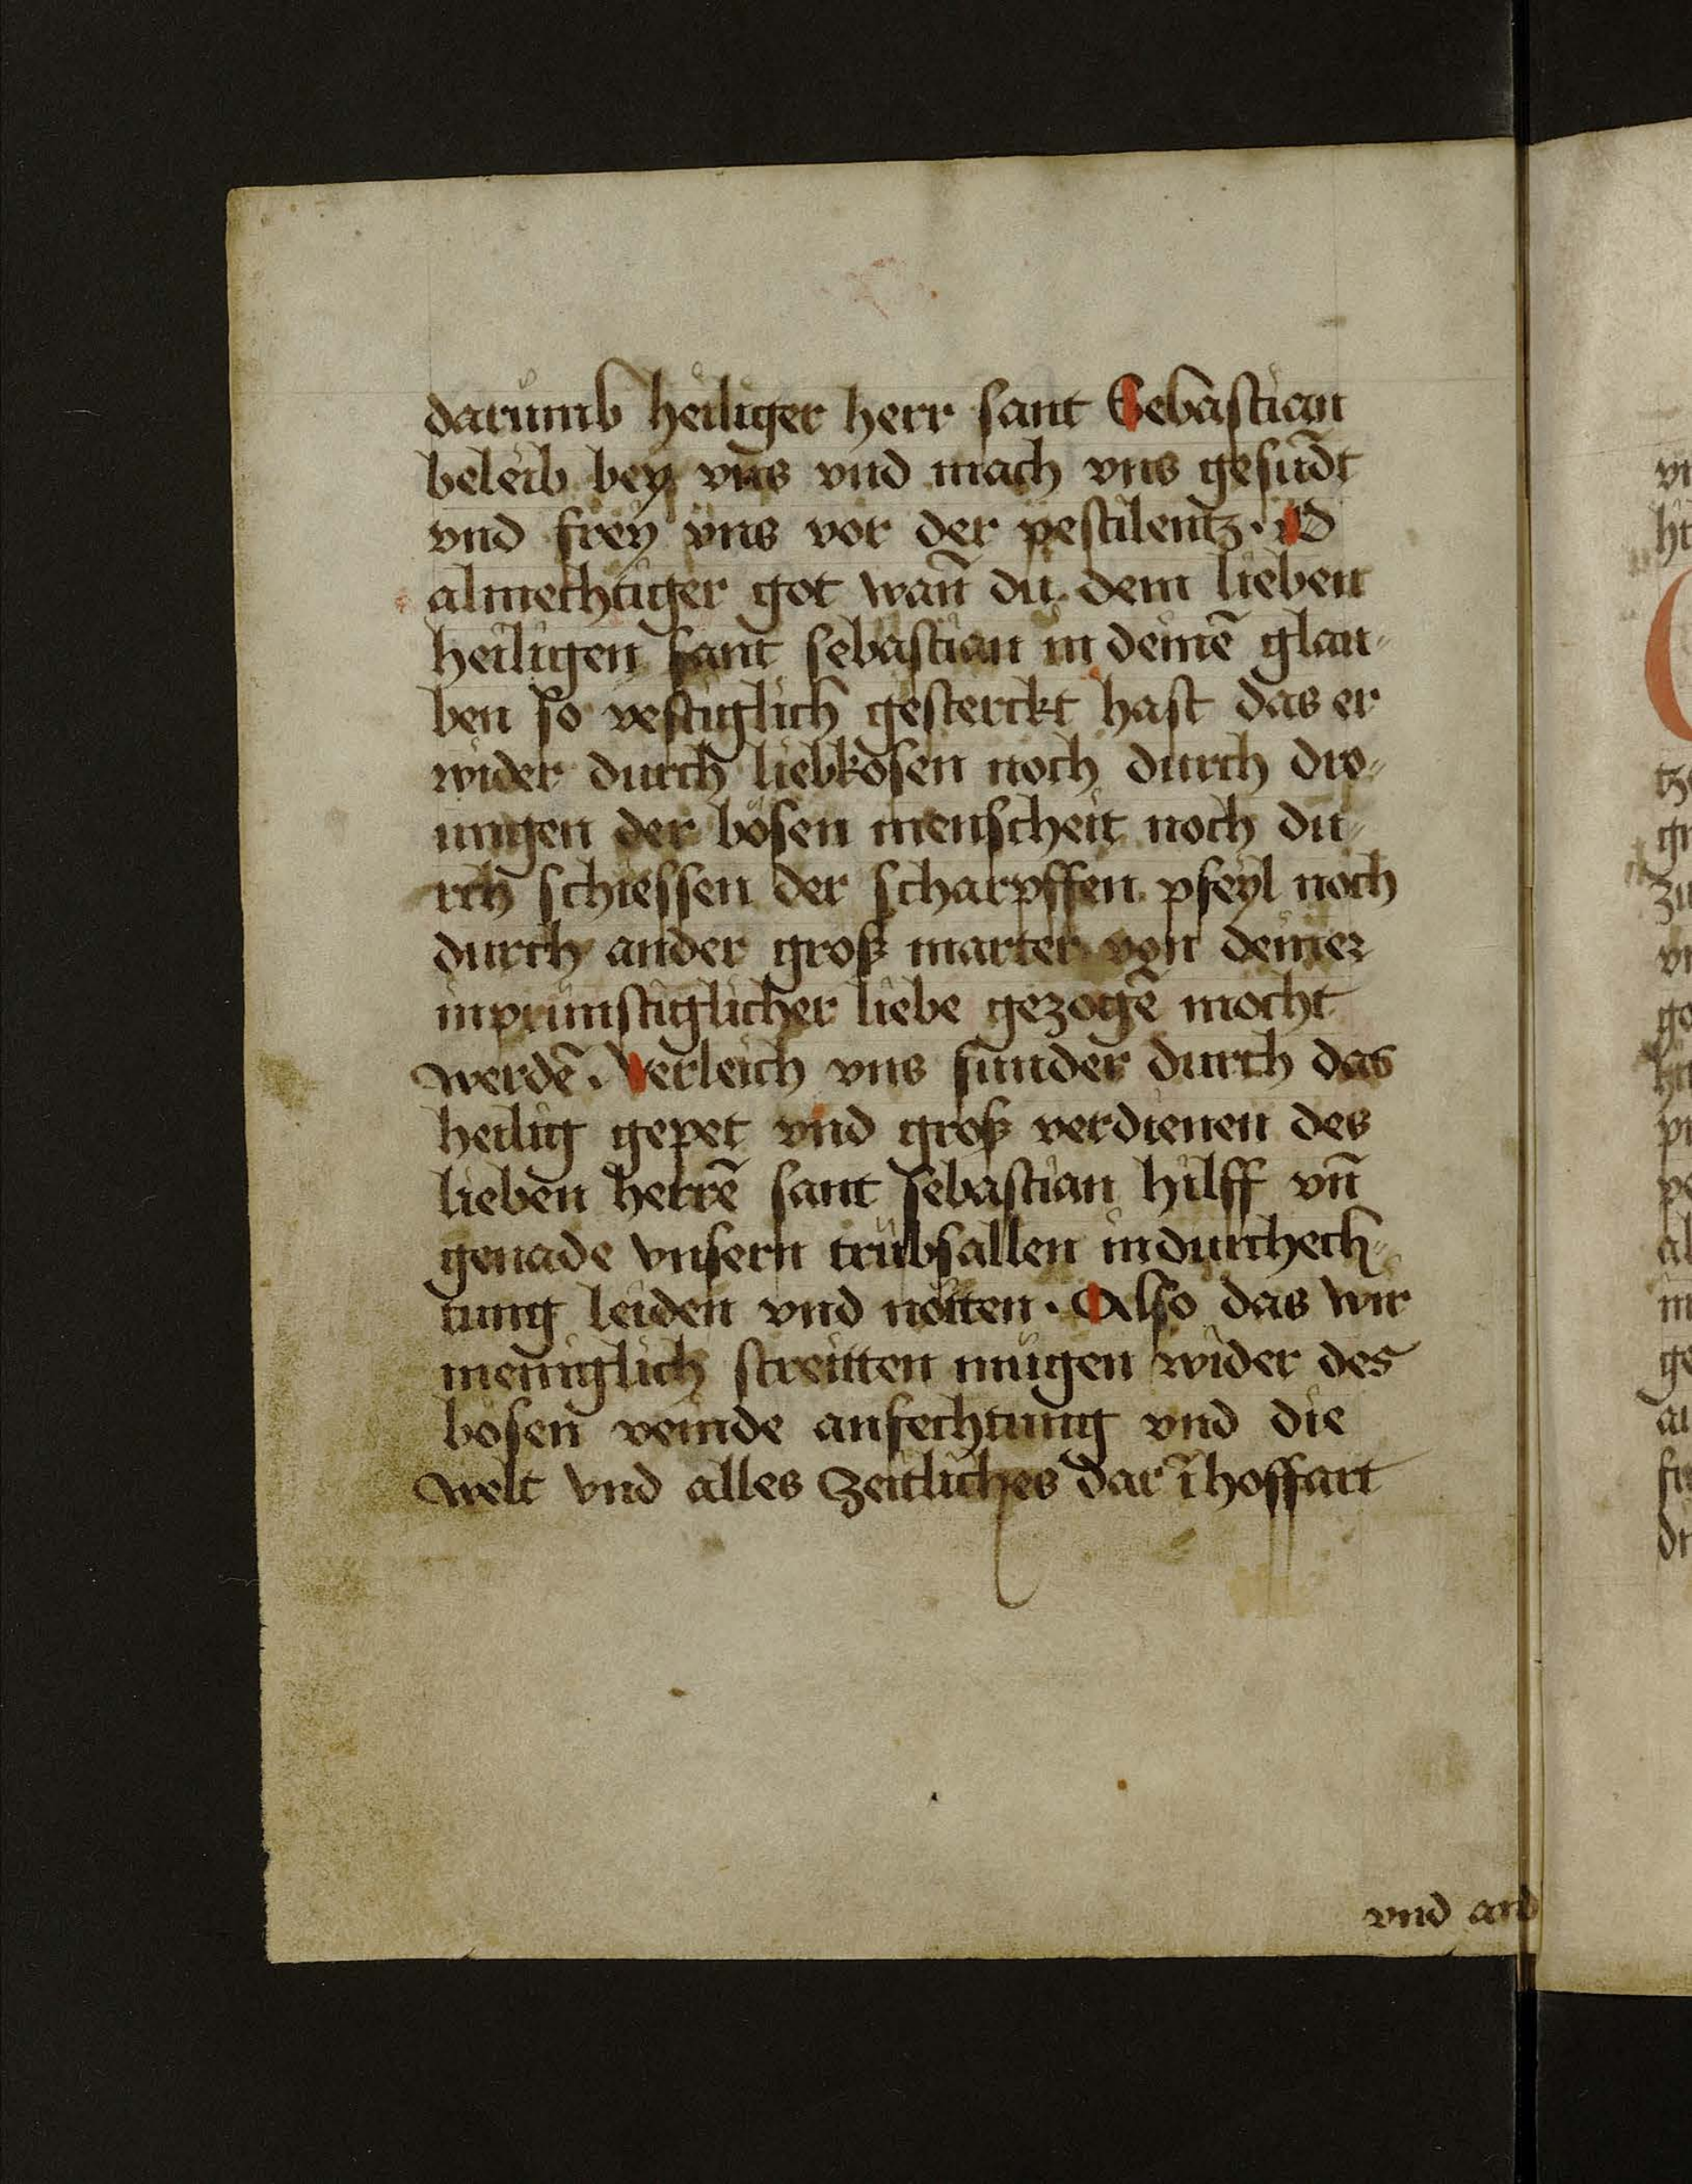 darumb heiliger herr sant Sebastian
beleib bey vns vnd mach vns gesūdt
vnd frey vns vor der pestilentz. O
almechtiger got wan̄ du dem lieben
heiligen sant sebastian in deinē glau-
ben so vestiglich gesterckt hast das er
wider durch liebkosen noch durch dro-
ungen der bösen menscheit noch du-
rch schiessen der scharpffen pfeyl noch
durch ander groß marter von deiner
inprünstiglicher liebe gezogē mocht
werdē. Verleich vns sunder durch das
heilig gepet vnd groß verdienen des
lieben herrē sant sebastian hilff vn̄
genade vnsern trübsallen indurchech-
tung leiden vnd nöiten. Also das wir
meniglich streitten mügen wider des
bösen veinde anfechtung vnd die
welt vnd alles zeitliches dar ī hoffart
vnd and